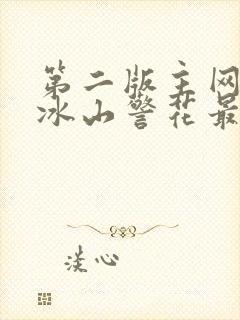 第二版主网
冰山警花最
淡心